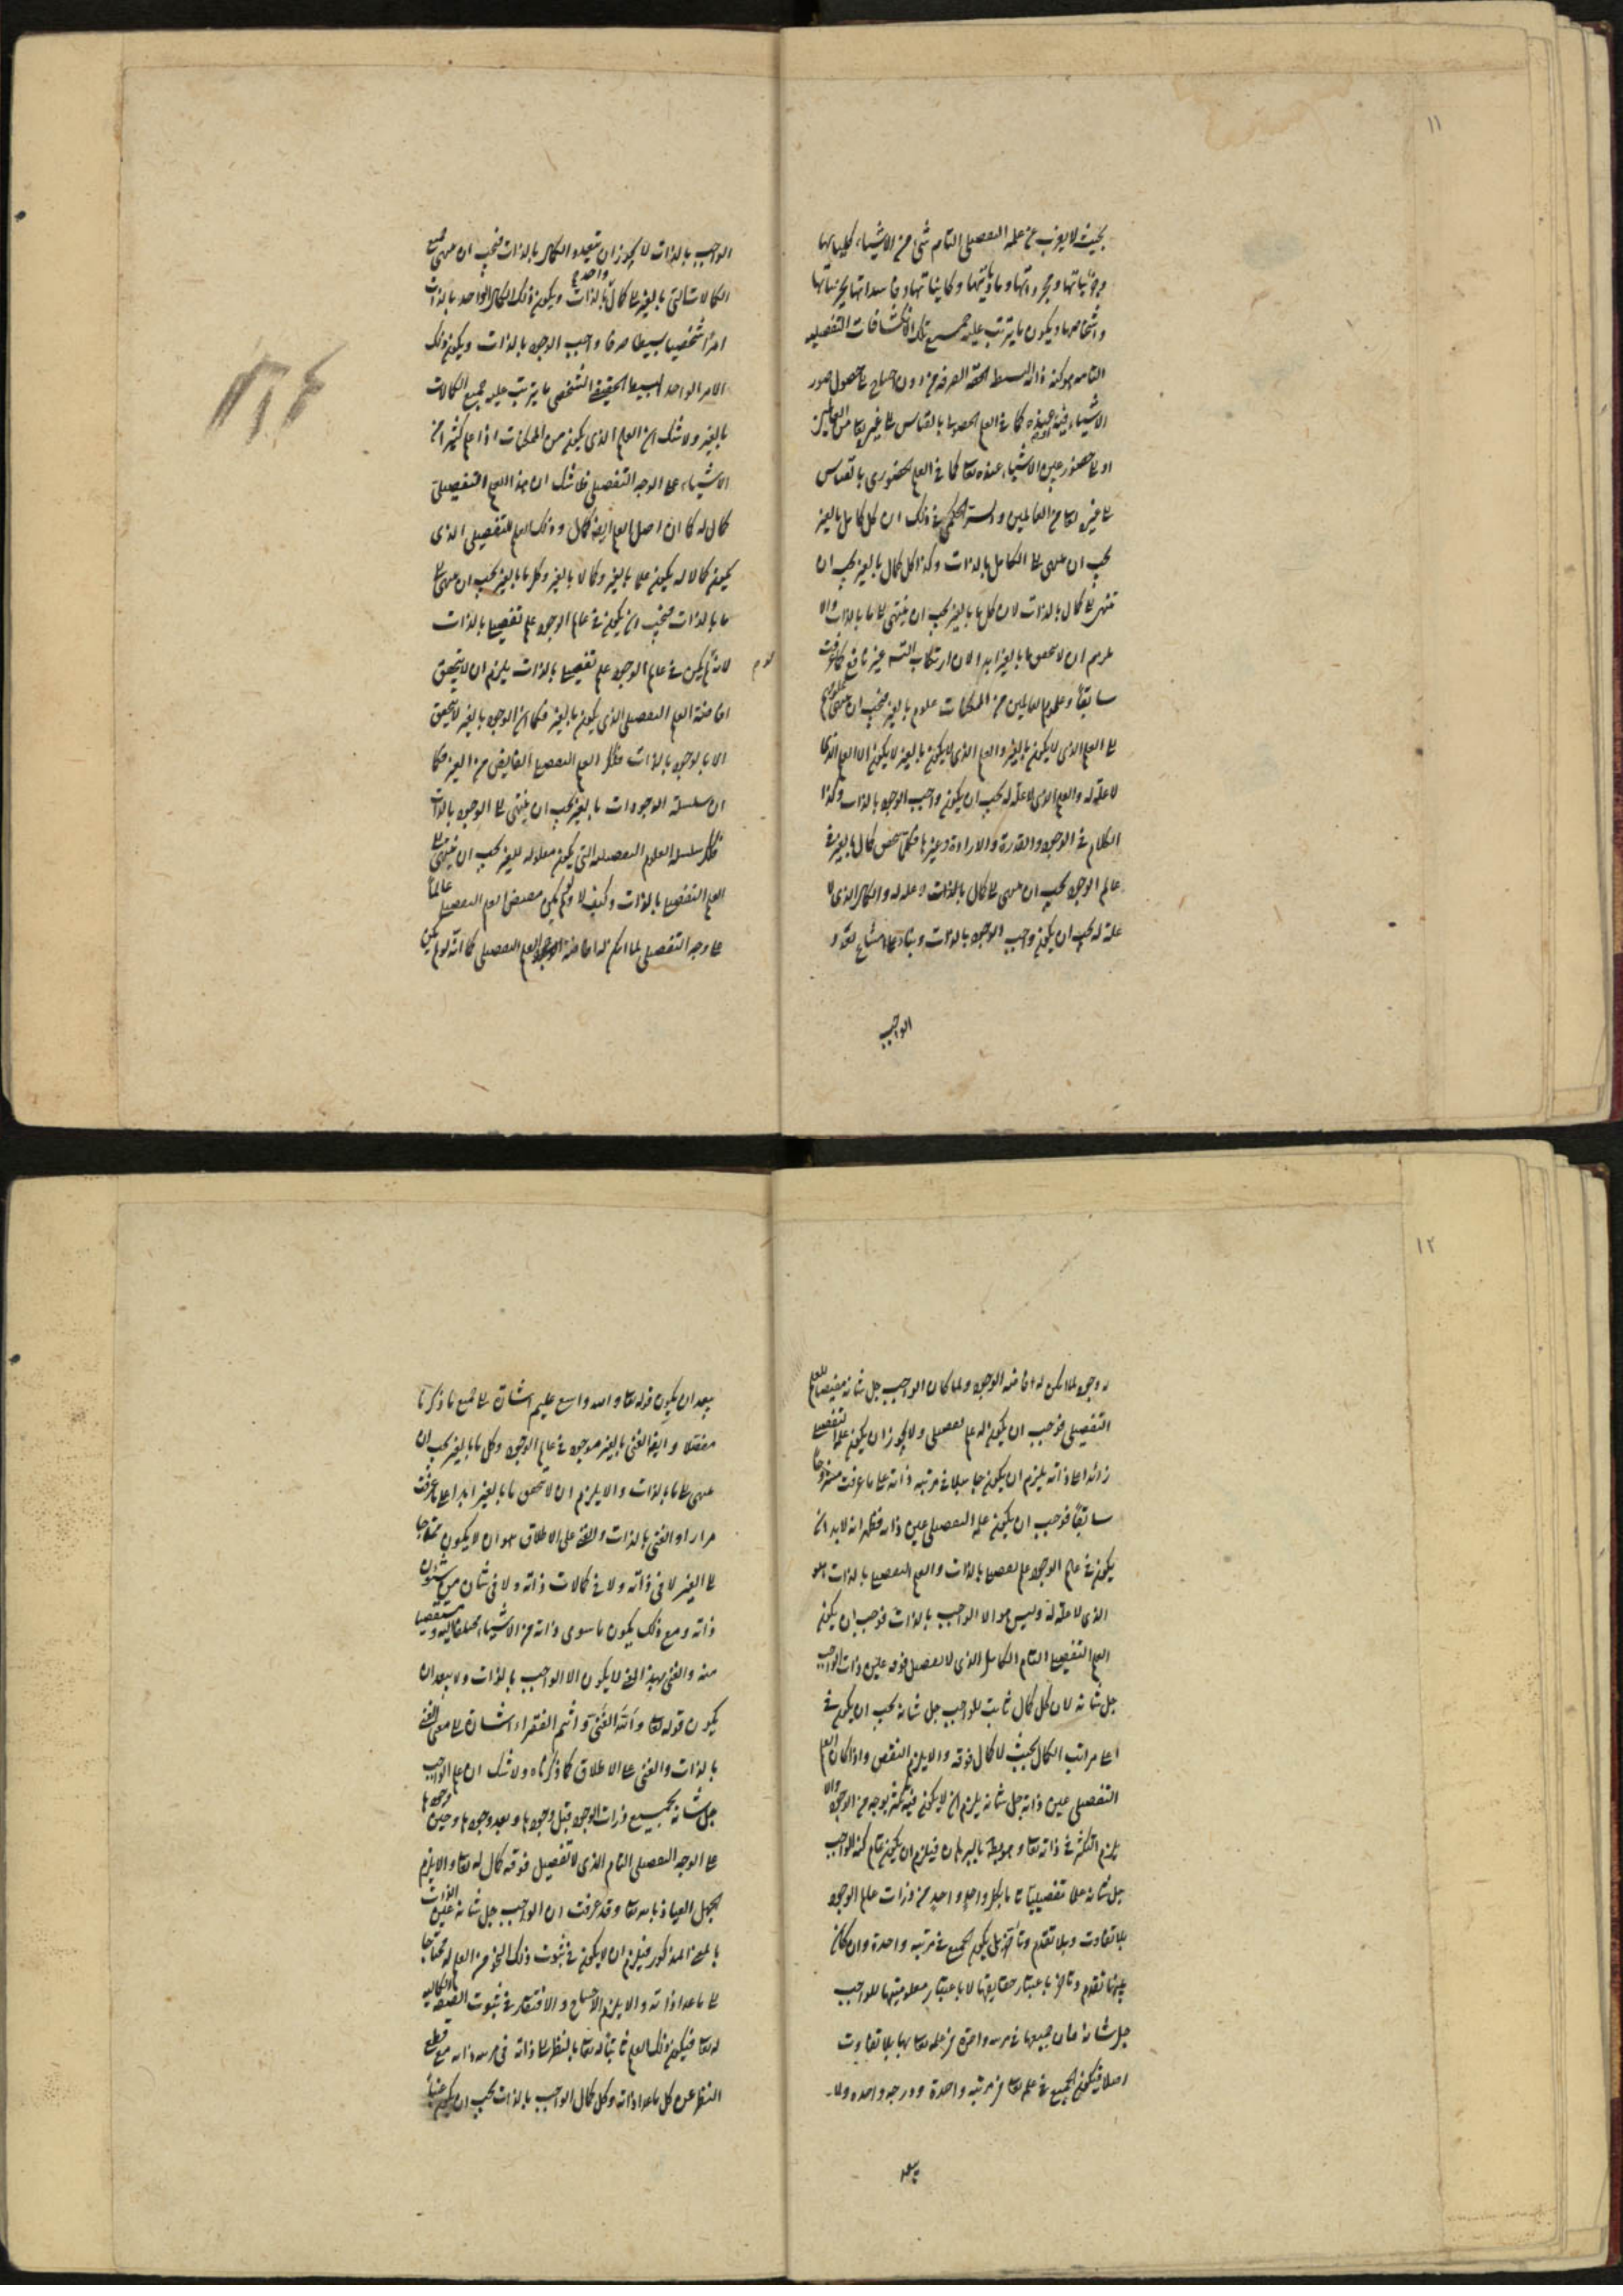 ١١
بحيث لا يعزب عن علمه التفصيلى التام شئ من الاشياء كلياتها
وجزئياتها ومجرداتها ومادياتها وكايناتها وفاسداتها بجزئياتها
واشخاصها ويكون ما يترتب عليه جميع تلك الانكشافات التفصيليه
التامه هو كنه ذاته البسيط الحقه الصرفه من دون احتياج الى حصول صور
الاشياء فيه عنده كما فى العلم الحصولى بالقياس الى غيره تعا من العالمين
او الى حضور عين الاشياء عنده تعا كما فى العلم الحضورى بالقياس
الى غيره تعا من العالمين والسر الحكمى فى ذلك ان كل كامل بالغير
يجب ان ينتهى الى الكامل بالذات وكذا كل كمال بالغير يجب ان
ينتهى الى كمال بالذات لان كل ما بالغير يجب ان ينتهى الى ما بالذات والا
يلزم ان لا يتحقق ما بالغير ابدا لان ارتكاب التسـ غير نافع كما عرفت
سابقاً وعلوم العالمين من الممكنات علوم بالغير فيجب ان ينتهى
الى العلم الذى لا يكون بالغير والعلم الذى لا يكون بالغير لا يكون الا العلم الذى
لا علة له والعلم الذى لا علة له يجب ان يكون واجب الوجود بالذات وكذا
الكلام فى الوجود والقدرة والارادة وغيرها فكل كمال بالغير فى
عالم الوجود يجب ان ينتهى الى كمال بالذات لا علة له والكمال الذى لا
علة له يجب ان يكون واجب الوجود بالذات وبناء على امتناع تعدد
الواجب
الواجب بالذات لا يجوز ان يتعدد الكمال بالذات فيجب ان ينتهى جميع
الكمالات التى بالغير الى كمال واحد بالذات ويكون ذلك الكمال الواحد بالذات
امراً شخصيا بسيطا صرفا واجب الوجود بالذات ويكون ذلك
الامر الواحد البسيط الحقيقى الشخصى ما يترتب عليه جميع الكمالات
بالغير ولا شك ان العلم الذى يكون من الممكنات اذا علم كثيرا من
الاشياء على الوجه التفصيلى فلا شك ان هذا العلم التفصيلى
كمال له كما ان اصل العلم ايضا كمال وذلك العلم التفصيلى الذى
يكون كمالا له يكون علما بالغير وكمالا بالغير وكل ما بالغير يجب ان ينتهى الى
ما بالذات فيجب ان يكون فى عالم الوجود علم تفصيلى بالذات
لانه لو لم يكن فى عالم الوجود علم تفصيلى بالذات يلزم ان لا يتحقق
افاضة العلم التفصيلى الذى يكون بالغير فكما ان الوجود بالغير لا يتحقق
الا بالوجود بالذات فكذا العلم التفصيلى الفايض من الغير فكما
ان سلسلة الوجودات بالغير يجب ان ينتهى الى الوجود بالذات
فكذا سلسله العلوم التفصيليه التى يكون معلوله للغير يجب ان ينتهى الى
العلم التفصيلى بالذات وكيف لا ولو لم يكن مفيض العلم التفصيلى عالماً
على وجه التفصيل لما امكن له افاضة العلم التفصيلى كما انه لو لم يكن
١٢
له وجود لما امكن له افاضه الوجود ولما كان الواجب جل شانه مفيضا للعلم
التفصيلى فوجب ان يكون له علم تفصيلى ولا يجوز ان يكون علمه التفصيلى
زائدا على ذاته يلزم ان يكون جاهلا فى مرتبه ذاته على ما عرفت مشروحاً
سابقاً فوجب ان يكون علمه التفصيلى عين ذاته فظهر انه لا بد ان
يكون فى عالم الوجود علم تفصيلى بالذات والعلم التفصيلى بالذات هو
الذى لا علة له وليس هو الا الواجب بالذات فوجب ان يكون
العلم التفصيلى التام الكامل الذى لا تفصيل فوقه عين ذات الواجب
جل شانه لان كل كمال ثابت للواجب جل شانه يجب ان يكون فى
اعلى مراتب الكمال بحيث لا كمال فوقه والا يلزم النقص واذا كان العلم
التفصيلى عين ذاته جل شانه يلزم ان لا يكون فيه تكثر بوجه من الوجوه والا
يلزم التكثر فى ذاته تعا وهو بط بالبرهان فيلزم ان يكون تمام كنه الواجب
جل شانه علما تفصيليا تاما بكل واحد واحد من ذرات عالم الوجود
بلا تفاوت وبلا تقدم وتاخر بل يكون الجميع فى مرتبه واحدة وان كان
بينها تقدم وتاخر باعتبار حقايقها لا باعتبار معلوميتها للواجب
جل شانه فان جميعها فى مرتبه واحدة من علمه تعا بها بلا تفاوت
اصلا فيكون الجميع فى علمه تعا من مرتبه واحدة ودرجه واحده ولا
يبعد
يبعد ان يكون قوله تعا والله واسع عليم اشارة الى جميع ما ذكرنا
مفصلا وايضا الغنى بالغير موجود فى عالم الوجود وكل ما بالغير يجب ان
ينتهى الى ما بالذات والا يلزم ان لا يتحقق ما بالغير ابدا على ما عرفت
مرارا والغنى بالذات والغنى على الاطلاق هو ان لا يكون محتاجا
الى الغير لا فى ذاته ولا فى كمالات ذاته ولا فى شان من شئون
ذاته ومع ذلك يكون ما سوى ذاته من الاشياء محتاجا اليه ومستفيضا
منه والغنى بهذا المعنى لا يكون الا الواجب بالذات ولا يبعد ان
يكون قوله تعا والله الغنى وانتم الفقراء اشارة الى معنى الغنى
بالذات والغنى على الاطلاق كما ذكرناه ولا شك ان علم الواجب
جل شانه بجميع ذرات الوجود قبل وجودها وبعد وجودها وحين وجودها
على الوجه التفصيلى التام الذى لا تفصيل فوقه كمال له تعا والا يلزم
الجهل العياذ بالله تعا وقد عرفت ان الواجب جل شانه غنى بالذات
بالمعنى المذكور فيلزم ان لا يكون فى ثبوت ذلك النحو من العلم له محتاجا
الى ما عدا ذاته والا يلزم الاحتياج والافتقار فى ثبوت الصفة الكماليه
له تعا فيكون ذلك العلم ثابتا له تعا بالنظر الى ذاته فى مرتبه ذاته مع قطع
النظر عن كل ما عدا ذاته وكل كمال الواجب بالذات يجب ان يكون عيناً